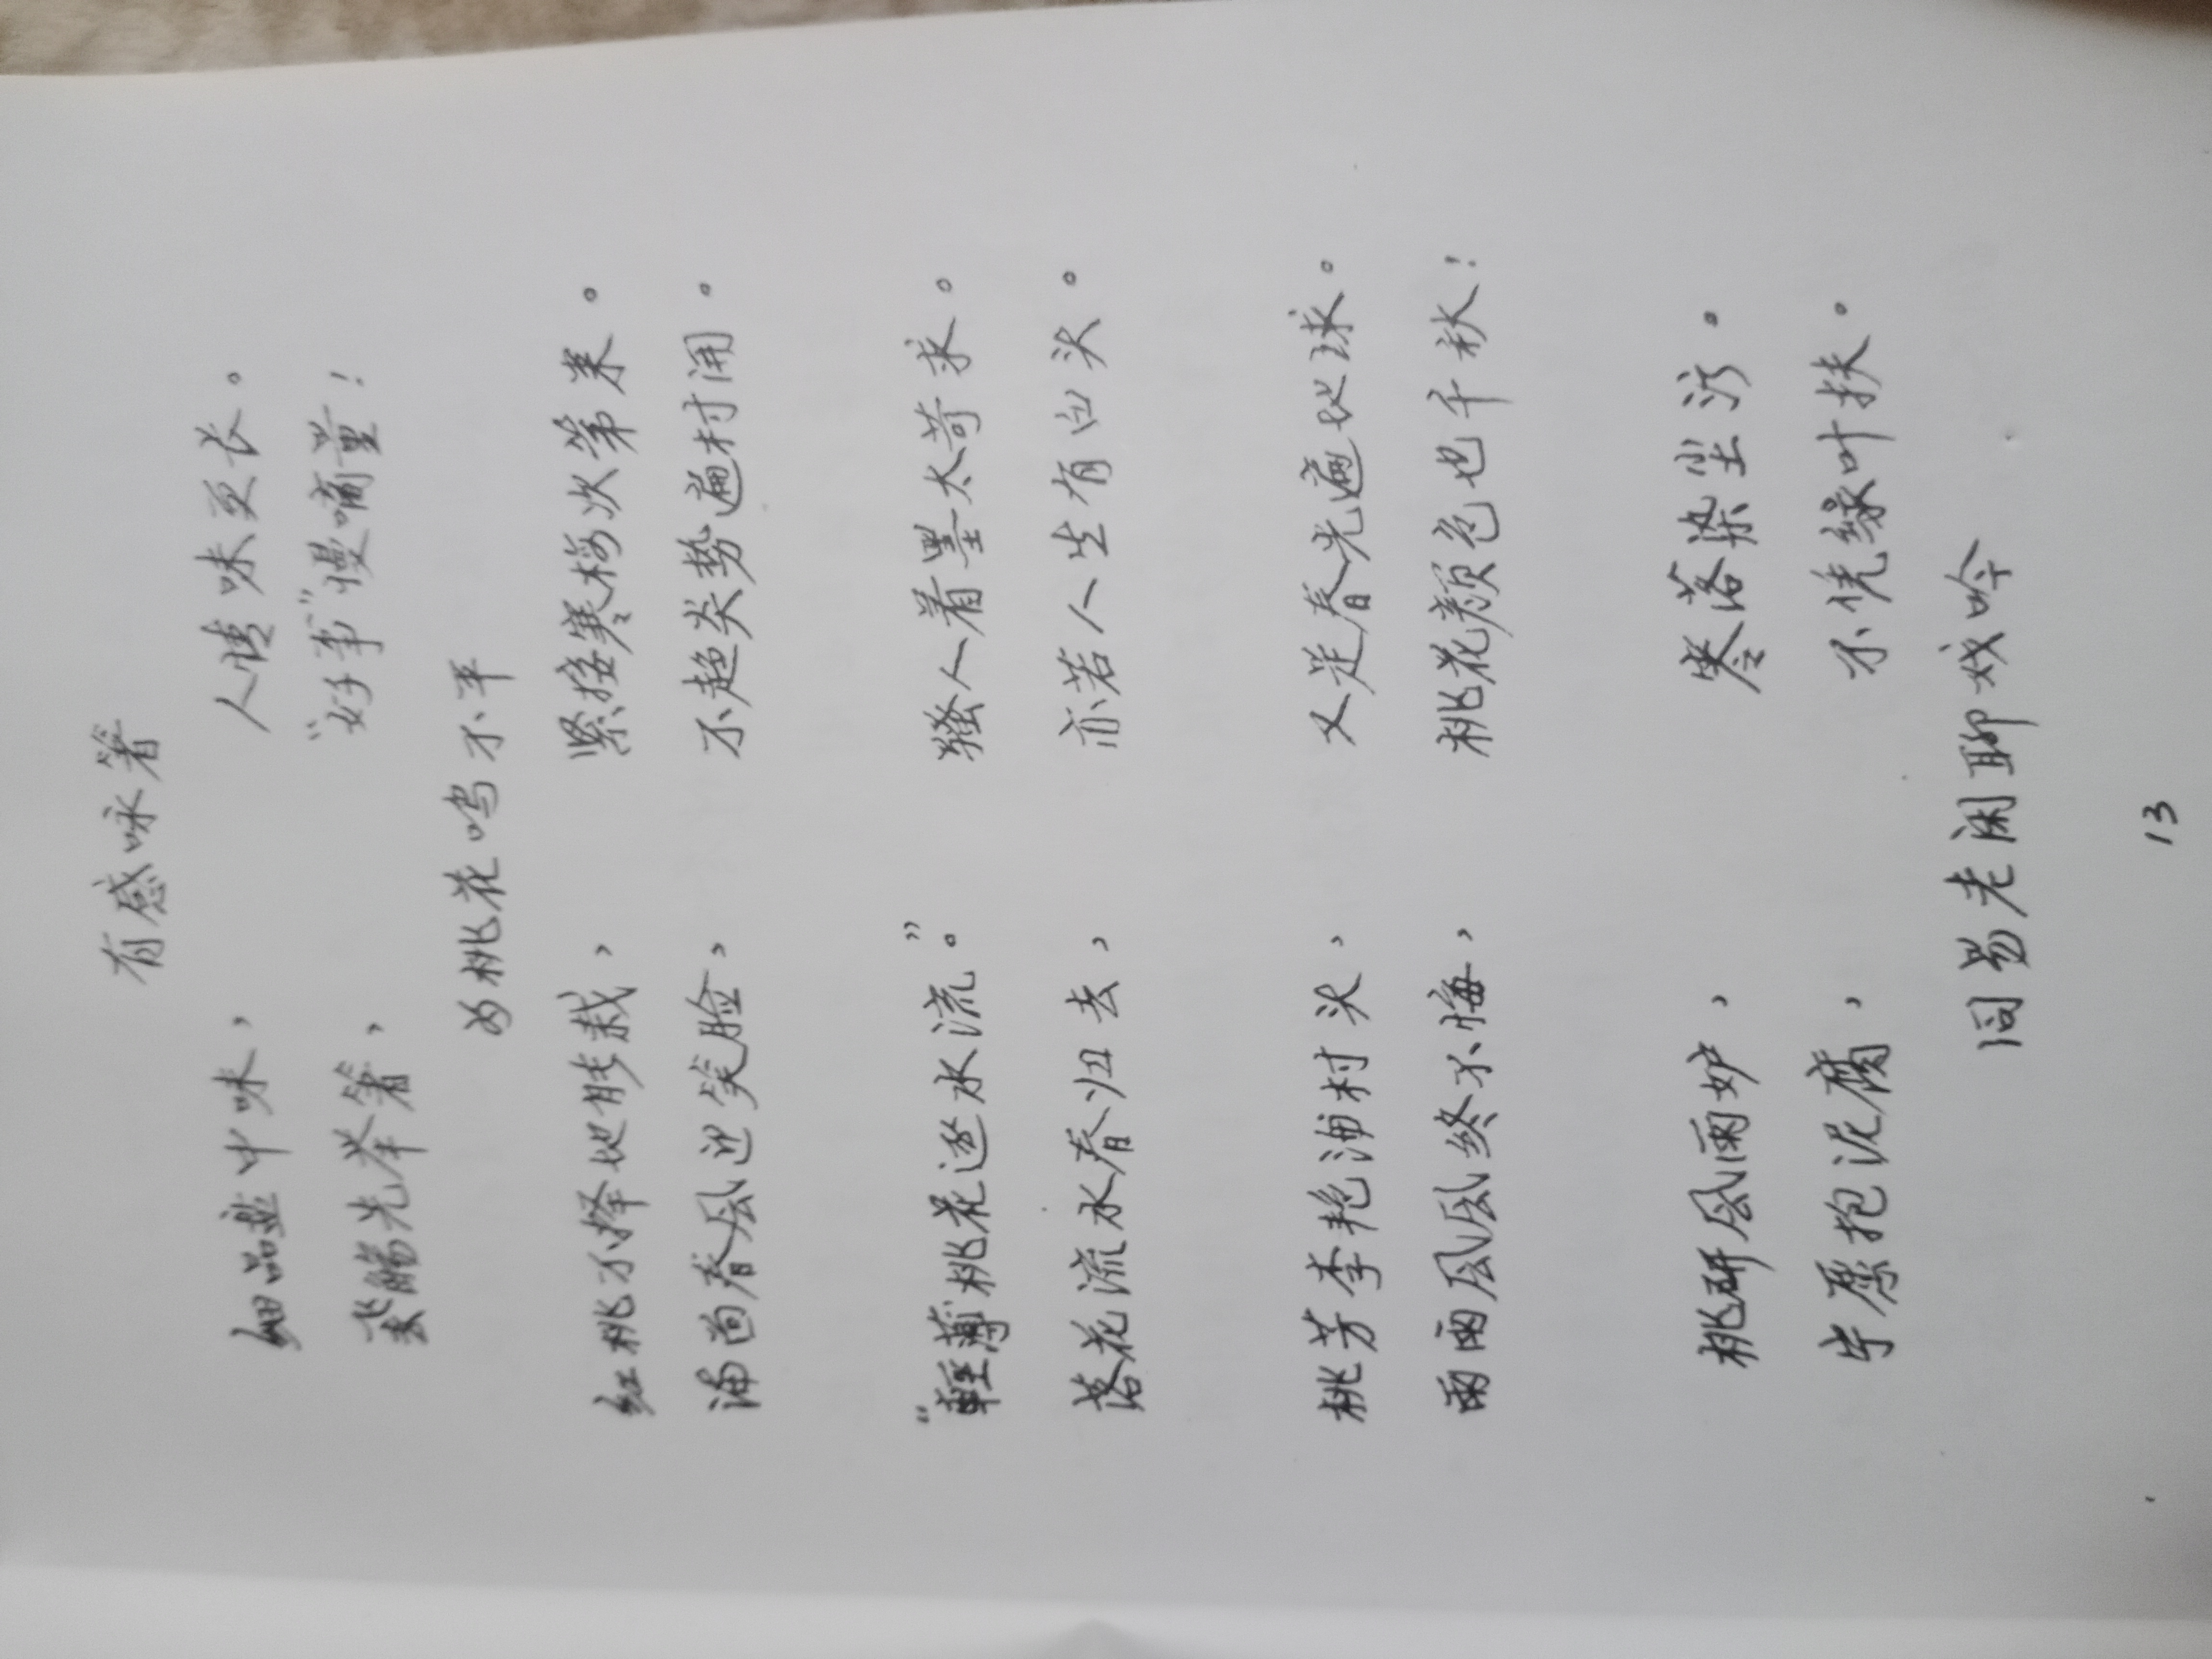 有感咏箸
细品盘中味，人情味更长。
耋觞先举箸，“好事”慢嘀量！
为桃花鸣不平
红桃不择地能栽，紧接寒梅次第来。
满面春风迎笑脸，不趋炎势遍村开。
“輕薄桃花逐水流。”骚人着墨太苛求。
落花流水春归去，亦若人生有白头。
桃芳李艳满村头，又是春光遍地球。
雨雨风风终不悔，桃花颜色也千秋！
桃妍风雨妒，寒落染尘污。
宁愿抱泥腐，不凭绿叶扶。
同易老闲聊戏吟
13